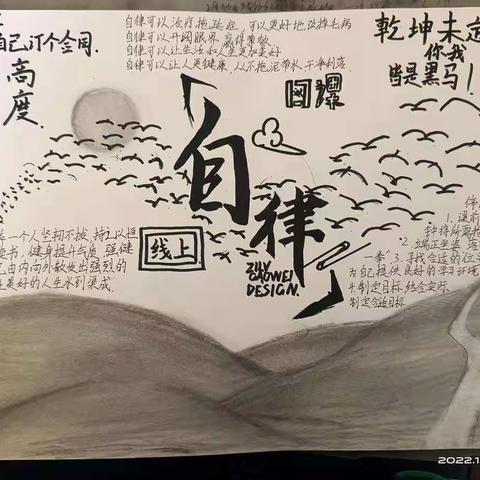 自己订个合同.
高度.
自律可以治疗拖延症,可以更好地改掉毛病
自律可以开阔眼界,赢得尊敬
自律可以让生活和人生更加美好
自律可以让人更健康,从不拖泥带水,干净利落
乾坤未定
你我
皆是黑马!
「自律」
线上
一个人坚韧不拔,持之以恒
读书,健身提升气质,强健
由内向外散发出强烈的
更美好的人生水到渠成.
DESIGN.
1.课前
2.端正坐姿
一拳"3.寻找合适的位
为自己提供良好的学习环境
4.制定目标,结合实际
制定合适目标
2022.1